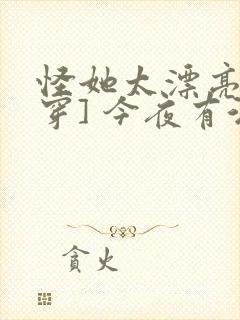 怪她太漂亮
穿]今夜有
貪火